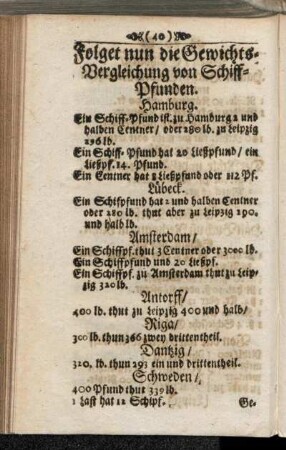 (40)
Folget nun die Gewichts-
Vergleichung von Schiff-
Pfunden.
Hamburg.
Ein Schiff-Pfund ist zu Hamburg 2 und
halben Centner / oder 280 lb. zu Leipzig
296 lb.
Ein Schiff-Pfund hat 20 Ließpfund / ein
Ließpf. 14. Pfund.
Ein Centner hat 8 Ließpfund oder 112 Pf.
Lübeck.
Ein Schifpfund hat 2 und halben Centner
oder 280 lb. thut aber zu Leipzig 290.
und halb lb.
Amsterdam /
Ein Schiffpf. thut 3 Centner oder 3000 lb.
Ein Schiffpfund und 20 Ließpf.
Ein Schiffpf. zu Amsterdam thut zu Leip-
zig 320 lb.
Antorff /
400 lb. thut zu Leipzig 400 und halb /
Riga /
300 lb. thun 366 zwey drittentheil.
Dantzig /
320. lb. thun 293 ein und drittentheil.
Schweden /
400 Pfund thut 339 lb.
1 Last hat 12 Schipf.
Ge-